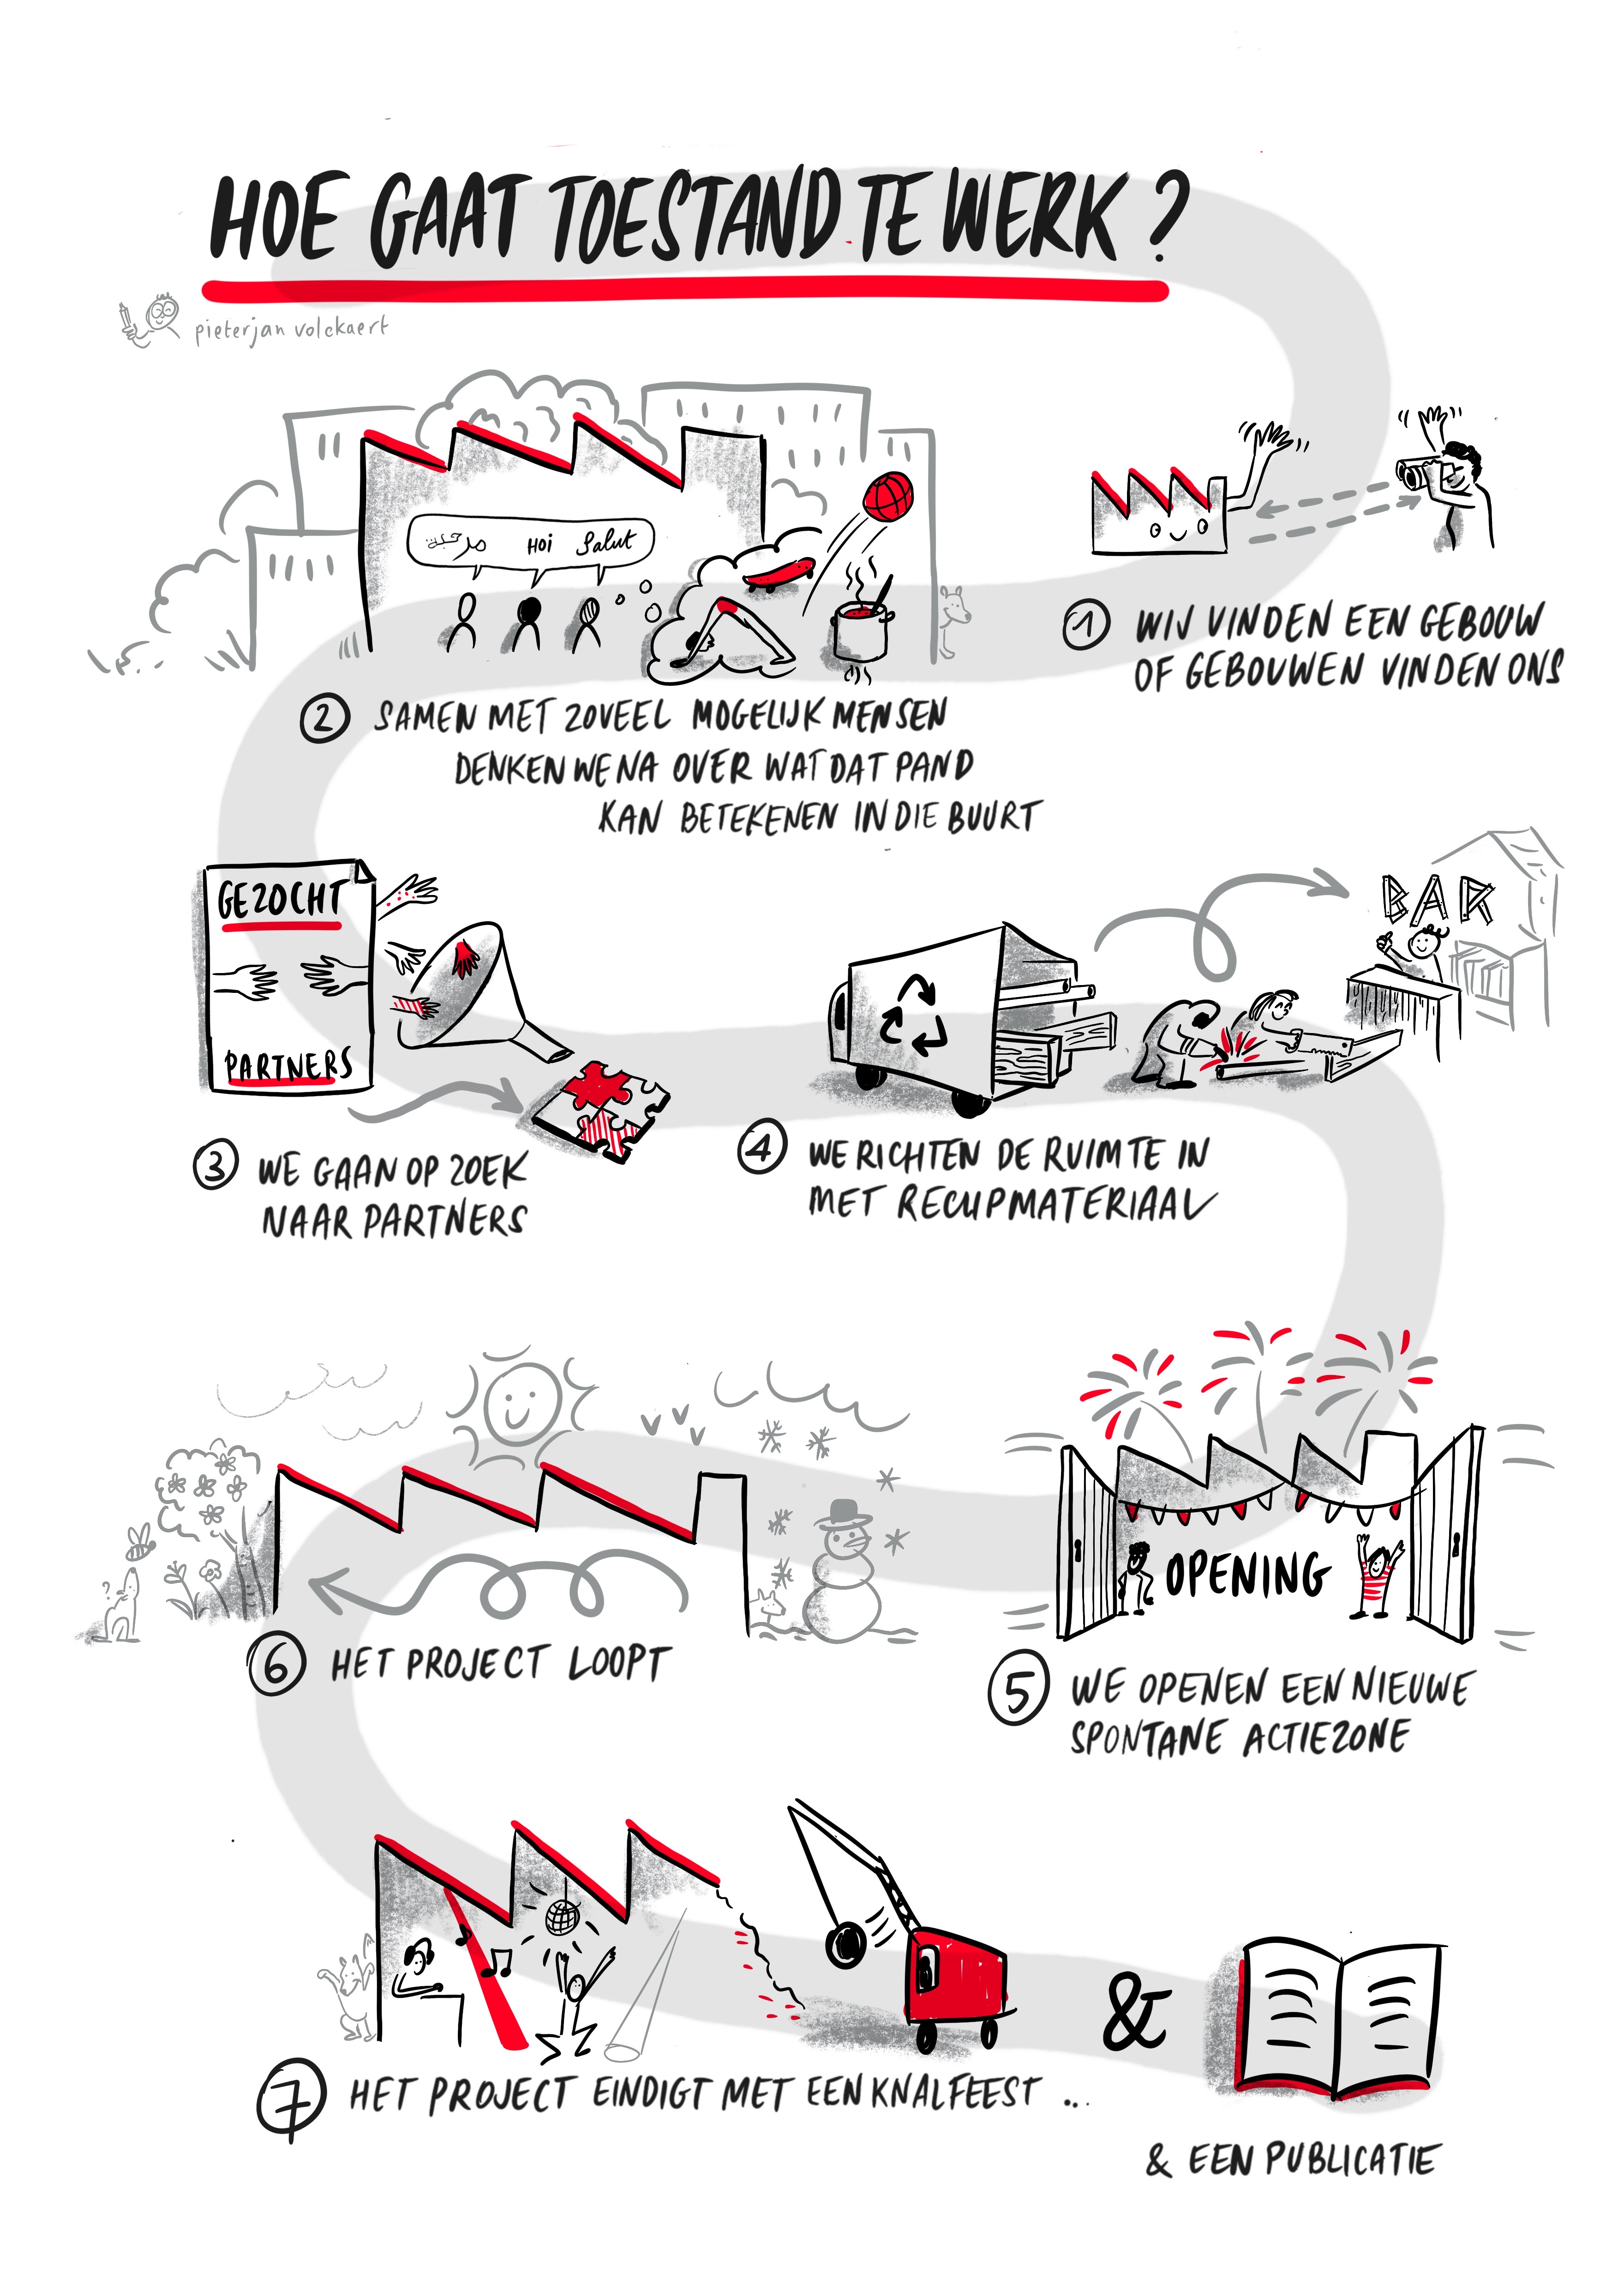 HOE GAAT TOESTAND TE WERK?
pieterjan volckaert
1 WIJ VINDEN EEN GEBOUW
OF GEBOUWEN VINDEN ONS
HOI Salut
2 SAMEN MET ZOVEEL MOGELIJK MENSEN
DENKEN WE NA OVER WAT DAT PAND
KAN BETEKENEN IN DIE BUURT
GEZOCHT
PARTNERS
3 WE GAAN OP ZOEK
NAAR PARTNERS
BAR
4 WE RICHTEN DE RUIMTE IN
MET RECUPMATERIAAL
OPENING
5 WE OPENEN EEN NIEUWE
SPONTANE ACTIEZONE
?
6 HET PROJECT LOOPT
7 HET PROJECT EINDIGT MET EEN KNALFEEST ...
&
& EEN PUBLICATIE